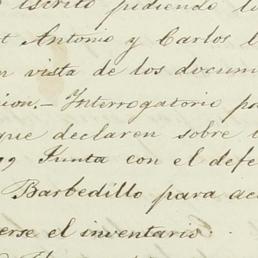 escrito pidiendo
Antonio y Carlos
vista de los docum
ion.- Interrogatorio pa
que declaren sobre
Junta con el defe
Barbedillo para ac
erse el inventario.